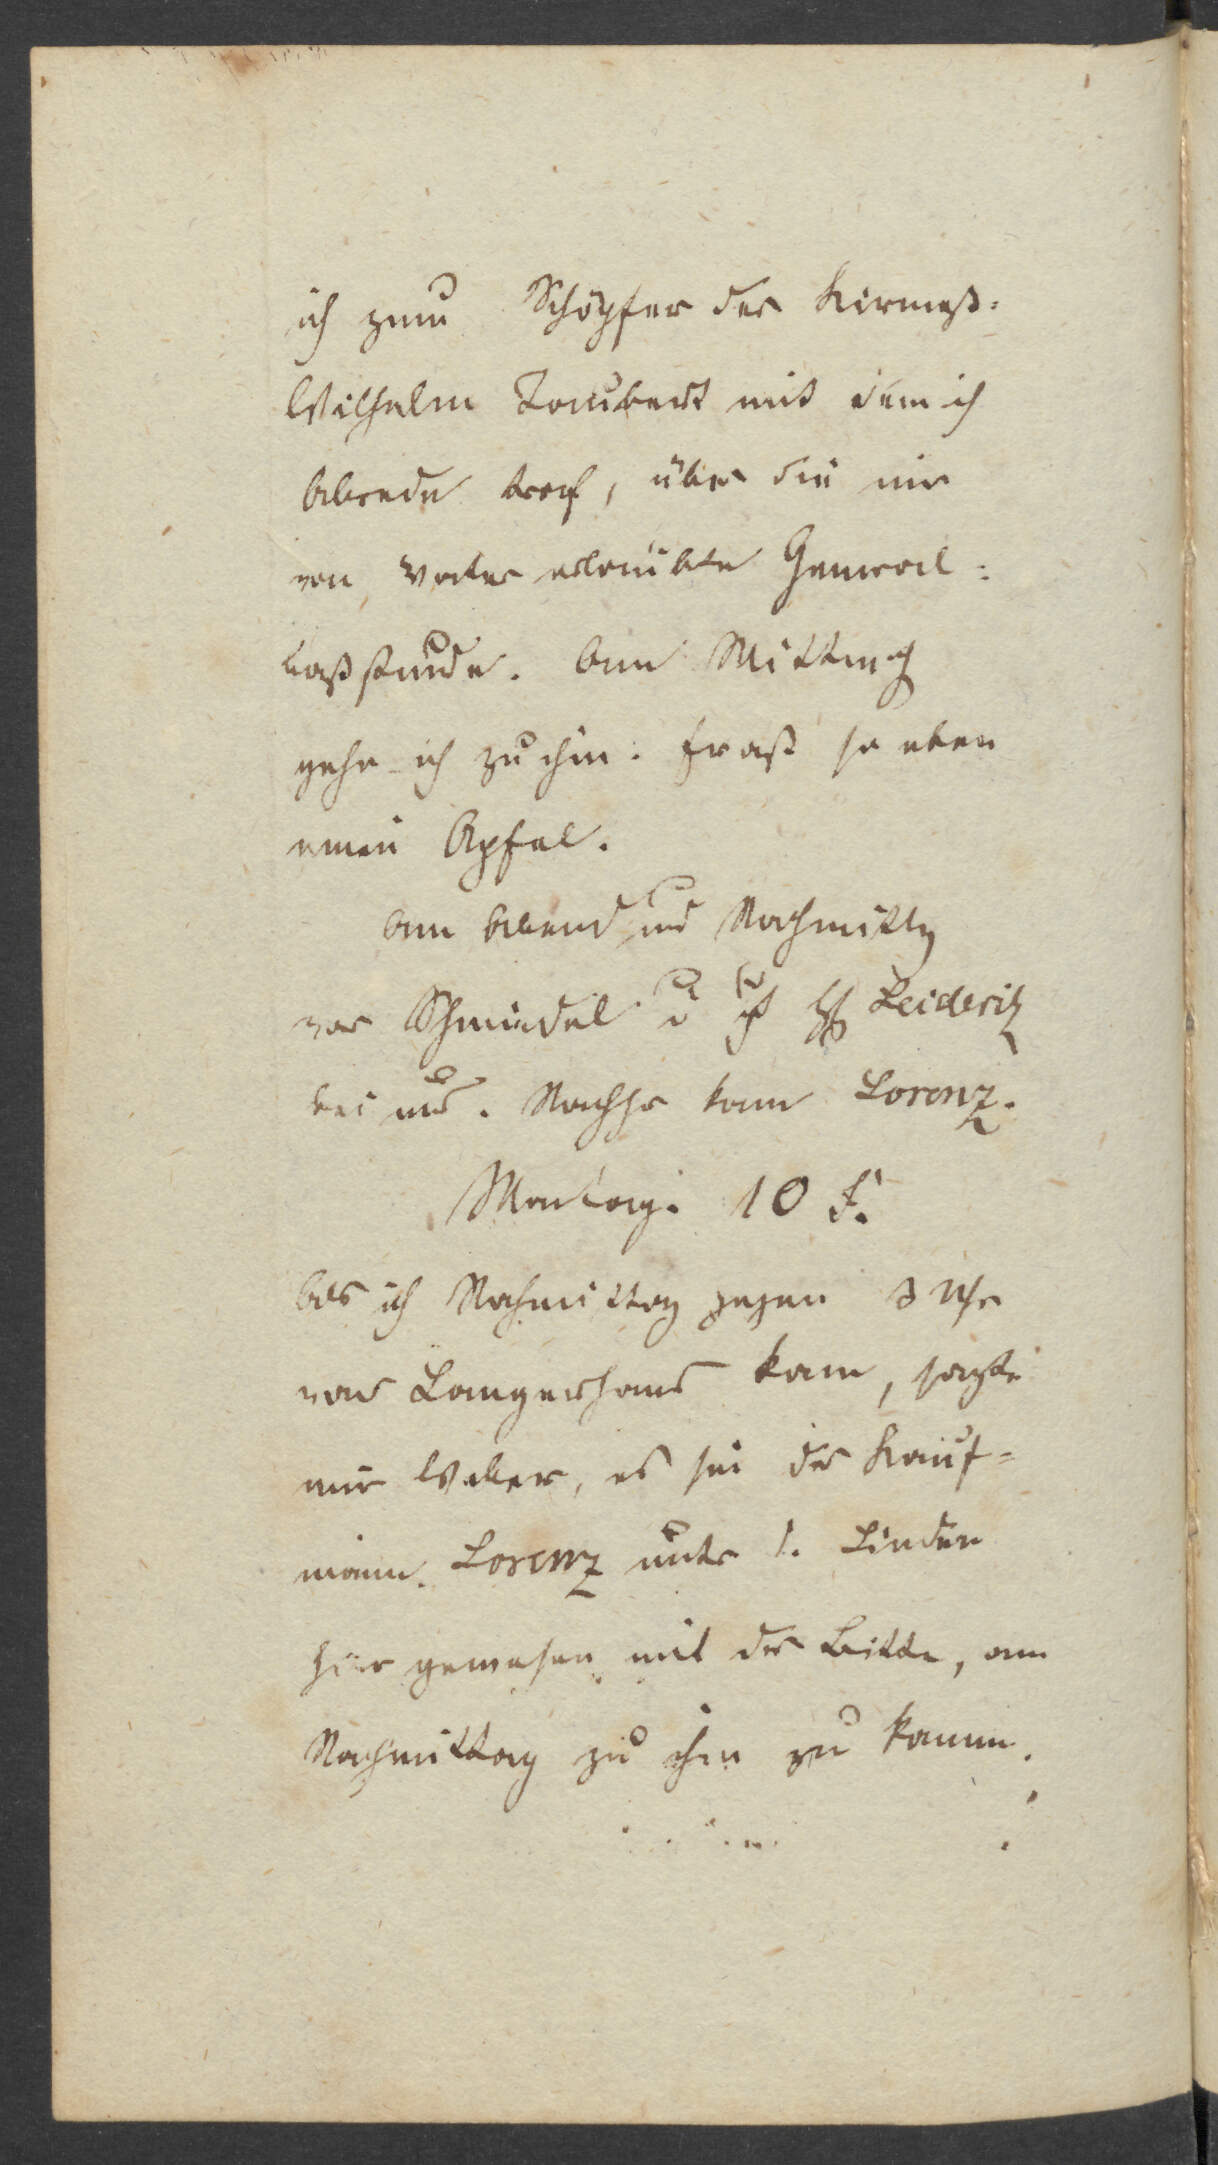 ich zum Schöpfer der Kirmeß=
Wilhelm Taubert mit dem ich
Abrede traf, über die mir
von Vater erlaubte General=
baßstunde. Am Mittwoch
gehe ich zu ihm. Fraß so eben
einen Apfel.
Am Abend und Nachmittg
war Schmidel u Hℓ Leideritz
bei uns. Nachhr kam Lorenz.
Montag. 10 F.
Als ich Nachmittag gegen 3 Uhr
von Langerhans kam, sagte
mir Weber, es sei der Kauf=
mann Lorenz unter d. Linden
hier gewesen mit der Bitte, am
Nachmittag zu ihm zu kommn.